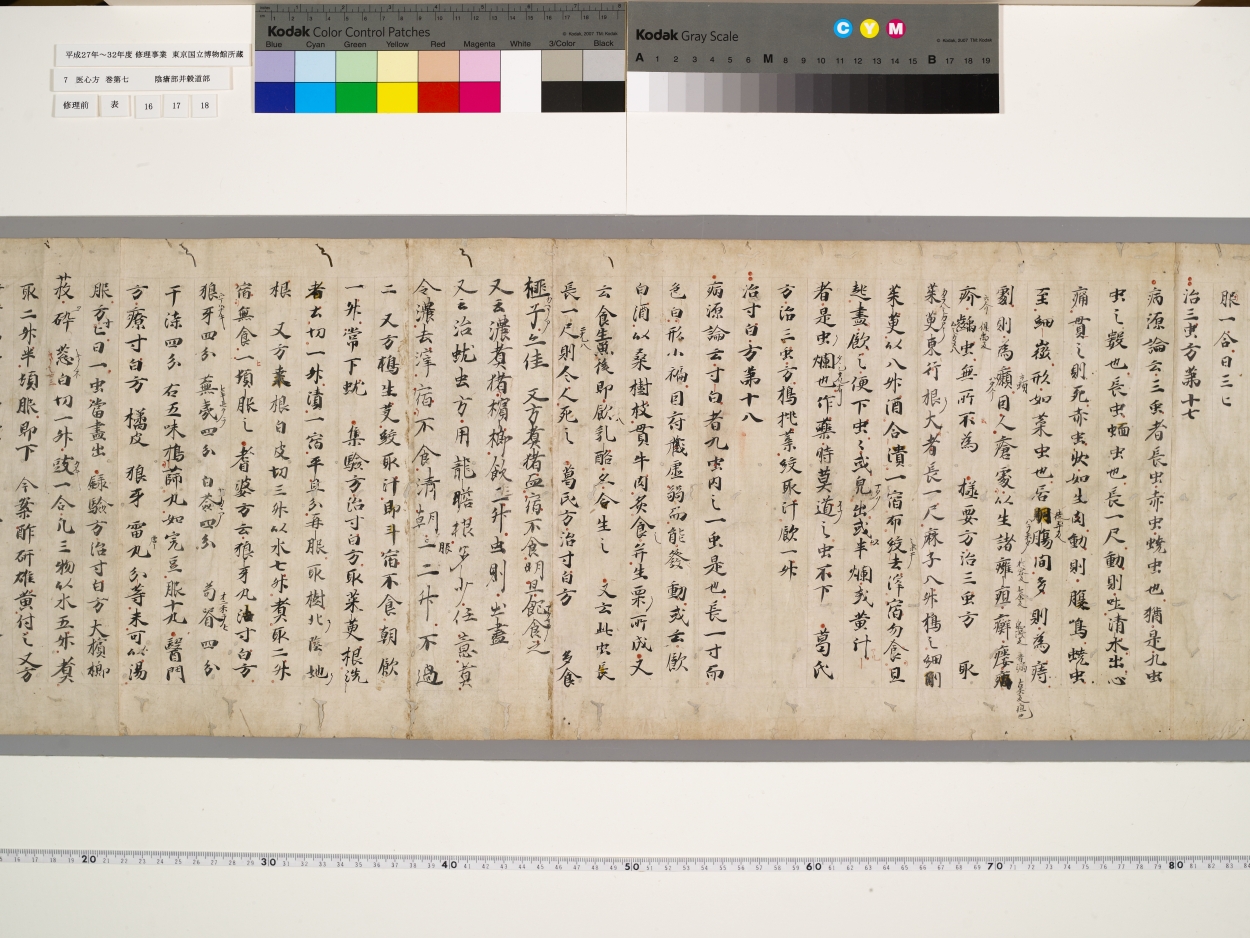 Kodak Color Control Patches
Blue Cyan Green Yellow Red Magenta White 3/Color Black
Kodak Gray Scale
C Y M
A 1 2 3 4 5 6 M 8 9 10 11 12 13 14 15 B 17 18 19
平成27年～32年度 修理事業 東京国立博物館所蔵
7 医心方 巻第七 陰瘡部并穀道部
修理前 表 16 17 18
服一合日三〻
治三虫方第十七
病源論云三虫者長虫赤虫蟯虫也猶是九虫
虫之數也長虫蛔虫也長一尺動則吐清水出心
痛貫心則死赤虫状如生肉動則腹鳴蟯虫
至細微形如菜虫也居胴腸間多則為痔
劇則為癩因人瘡處以生諸癰疽癬瘻
疥齲虫無所不為 極要方治三虫方 取
茱萸東行根大者長一尺麻子八升橘皮細剉
茱萸以八升酒合漬一宿布絞去滓宿勿食旦
起盡飲之便下虫〻或死出或半爛或黄汁
者是虫爛也作藥時莫道之虫不下 葛氏
方治三虫方 搗桃葉絞取汁飲一升
治寸白方第十八
病源論云寸白者九虫内之一虫是也長一寸而
色白形小褊因府藏虚弱而能發動或云飲
白酒以桑樹枝貫牛肉炙食并生栗所成又
云食生魚後即飲乳酪久合生之 又云此虫長
長一尺則令人死之 葛氏方治寸白方 多食
榧子亦佳 又方煮猪血宿不食明旦飽食之
又云濃煮猪檳榔飲二升虫則出盡
又云治蚘虫方用龍膽根多少任意莫
令濃去滓宿不食清朝服二二升不過
二 又方鶴生艾絞取汁即斗宿不食朝飲
一升常下蚘 集驗方治寸白方取茱萸根洗
者去切一升漬一宿平旦分再服取樹北陰地
根 又方桑根白皮切三升以水七升煮取二升
宿無食一頓服之 耆婆方云狼牙丸治寸白方
狼牙四分 蕪荑四分 白蘞四分 苟脊四分
干漆四分 右五味搗篩丸如菀豆服十丸 醫門
方療寸白方 橘皮 狼牙 雷丸分等末可以湯
服方匕日一虫當盡出 録驗方治寸白方 大檳榔
莪碎 葱白切一升豉一合凡三物以水五升煮
取二升半頓服即下 今案酢研雄黄付之 又方
20 30 40 50 60 70 80